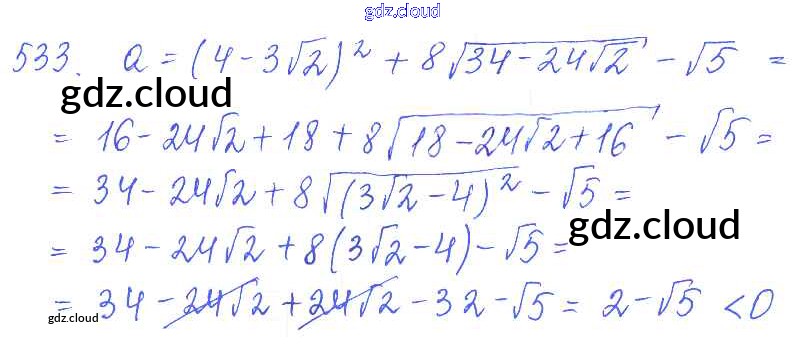 gdz.cloud
533. a = (4 - 3√2)² + 8√(34 - 24√2) - √5 =
gdz.cloud
= 16 - 24√2 + 18 + 8√(18 - 24√2 + 16) - √5 =
= 34 - 24√2 + 8√((3√2 - 4)²) - √5 =
gdz.cloud
= 34 - 24√2 + 8(3√2 - 4) - √5 =
= 34 - 24√2 + 24√2 - 32 - √5 = 2 - √5 < 0
gdz.cloud